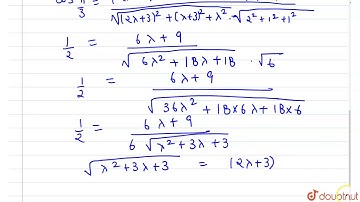 cos π/3 = √(2λ+3)² + (λ+3)² + λ² · √2² + 1² + 1²
1/2 = 6λ + 9 / √6λ² + 18λ + 18 · √6
1/2 = 6λ + 9 / √36λ² + 18×6λ + 18×6
1/2 = 6λ + 9 / 6 √λ² + 3λ + 3
√λ² + 3λ + 3 = (2λ+3)
doubtnut